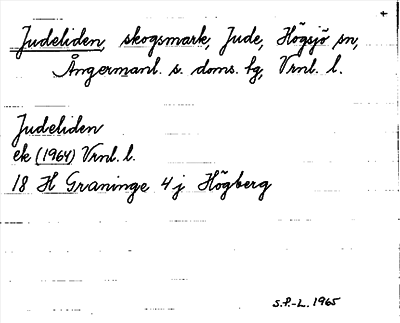 Judeliden, skogsmark, Jude, Högsjö sn,
Ångermanl. s. doms. tg, Vrnl. l.
Judeliden
ek (1964) Vrnl. l.
18 H Graninge 4 j Högberg
S.P.-L. 1965